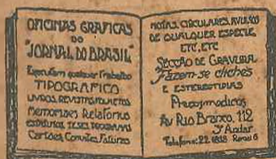 OFICINAS GRAFICAS
DO
"JORNAL DO BRASIL"
Executam qualquer Trabalho
TIPOGRAFICO
LIVROS, REVISTAS, FOLHETOS
Memoriaes Relatorios
ESPECIAES, TESES, PROGRAMAS
Cartões, Convites, Faturas
NOTAS, CIRCULARES, AVULSOS
DE QUALQUER ESPECIE,
ETC., ETC.
SECÇÃO DE GRAVURA
Fazem-se clichés
E ESTEREOTIPIAS
Preços modicos
Av Rio Branco, 112
3º Andar
Telefone: 22-1818 Ramal 6